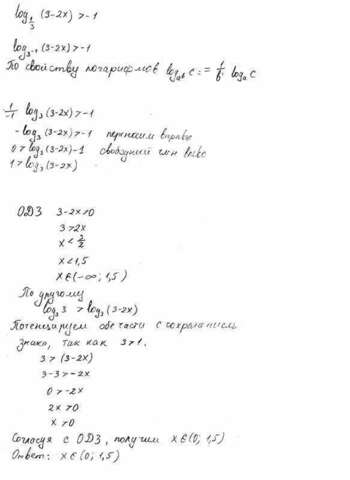 log_{1/3} (3-2x) > -1
log_{3^{-1}} (3-2x) > -1
По свойству логарифмов log_{a^b} c = 1/b log_a c
1/-1 log_3 (3-2x) > -1
-log_3 (3-2x) > -1 переносим вправо
0 > log_3 (3-2x) -1 свободный член влево
1 > log_3 (3-2x)
ОДЗ 3-2x > 0
3 > 2x
x < 3/2
x < 1,5
x ∈ (-∞; 1,5)
По другому
log_3 3 > log_3 (3-2x)
Потенцируем обе части с сохранением
знака, так как 3 > 1.
3 > (3-2x)
3-3 > -2x
0 > -2x
2x > 0
x > 0
Согласуя с ОДЗ, получим x ∈ (0; 1,5)
Ответ: x ∈ (0; 1,5)